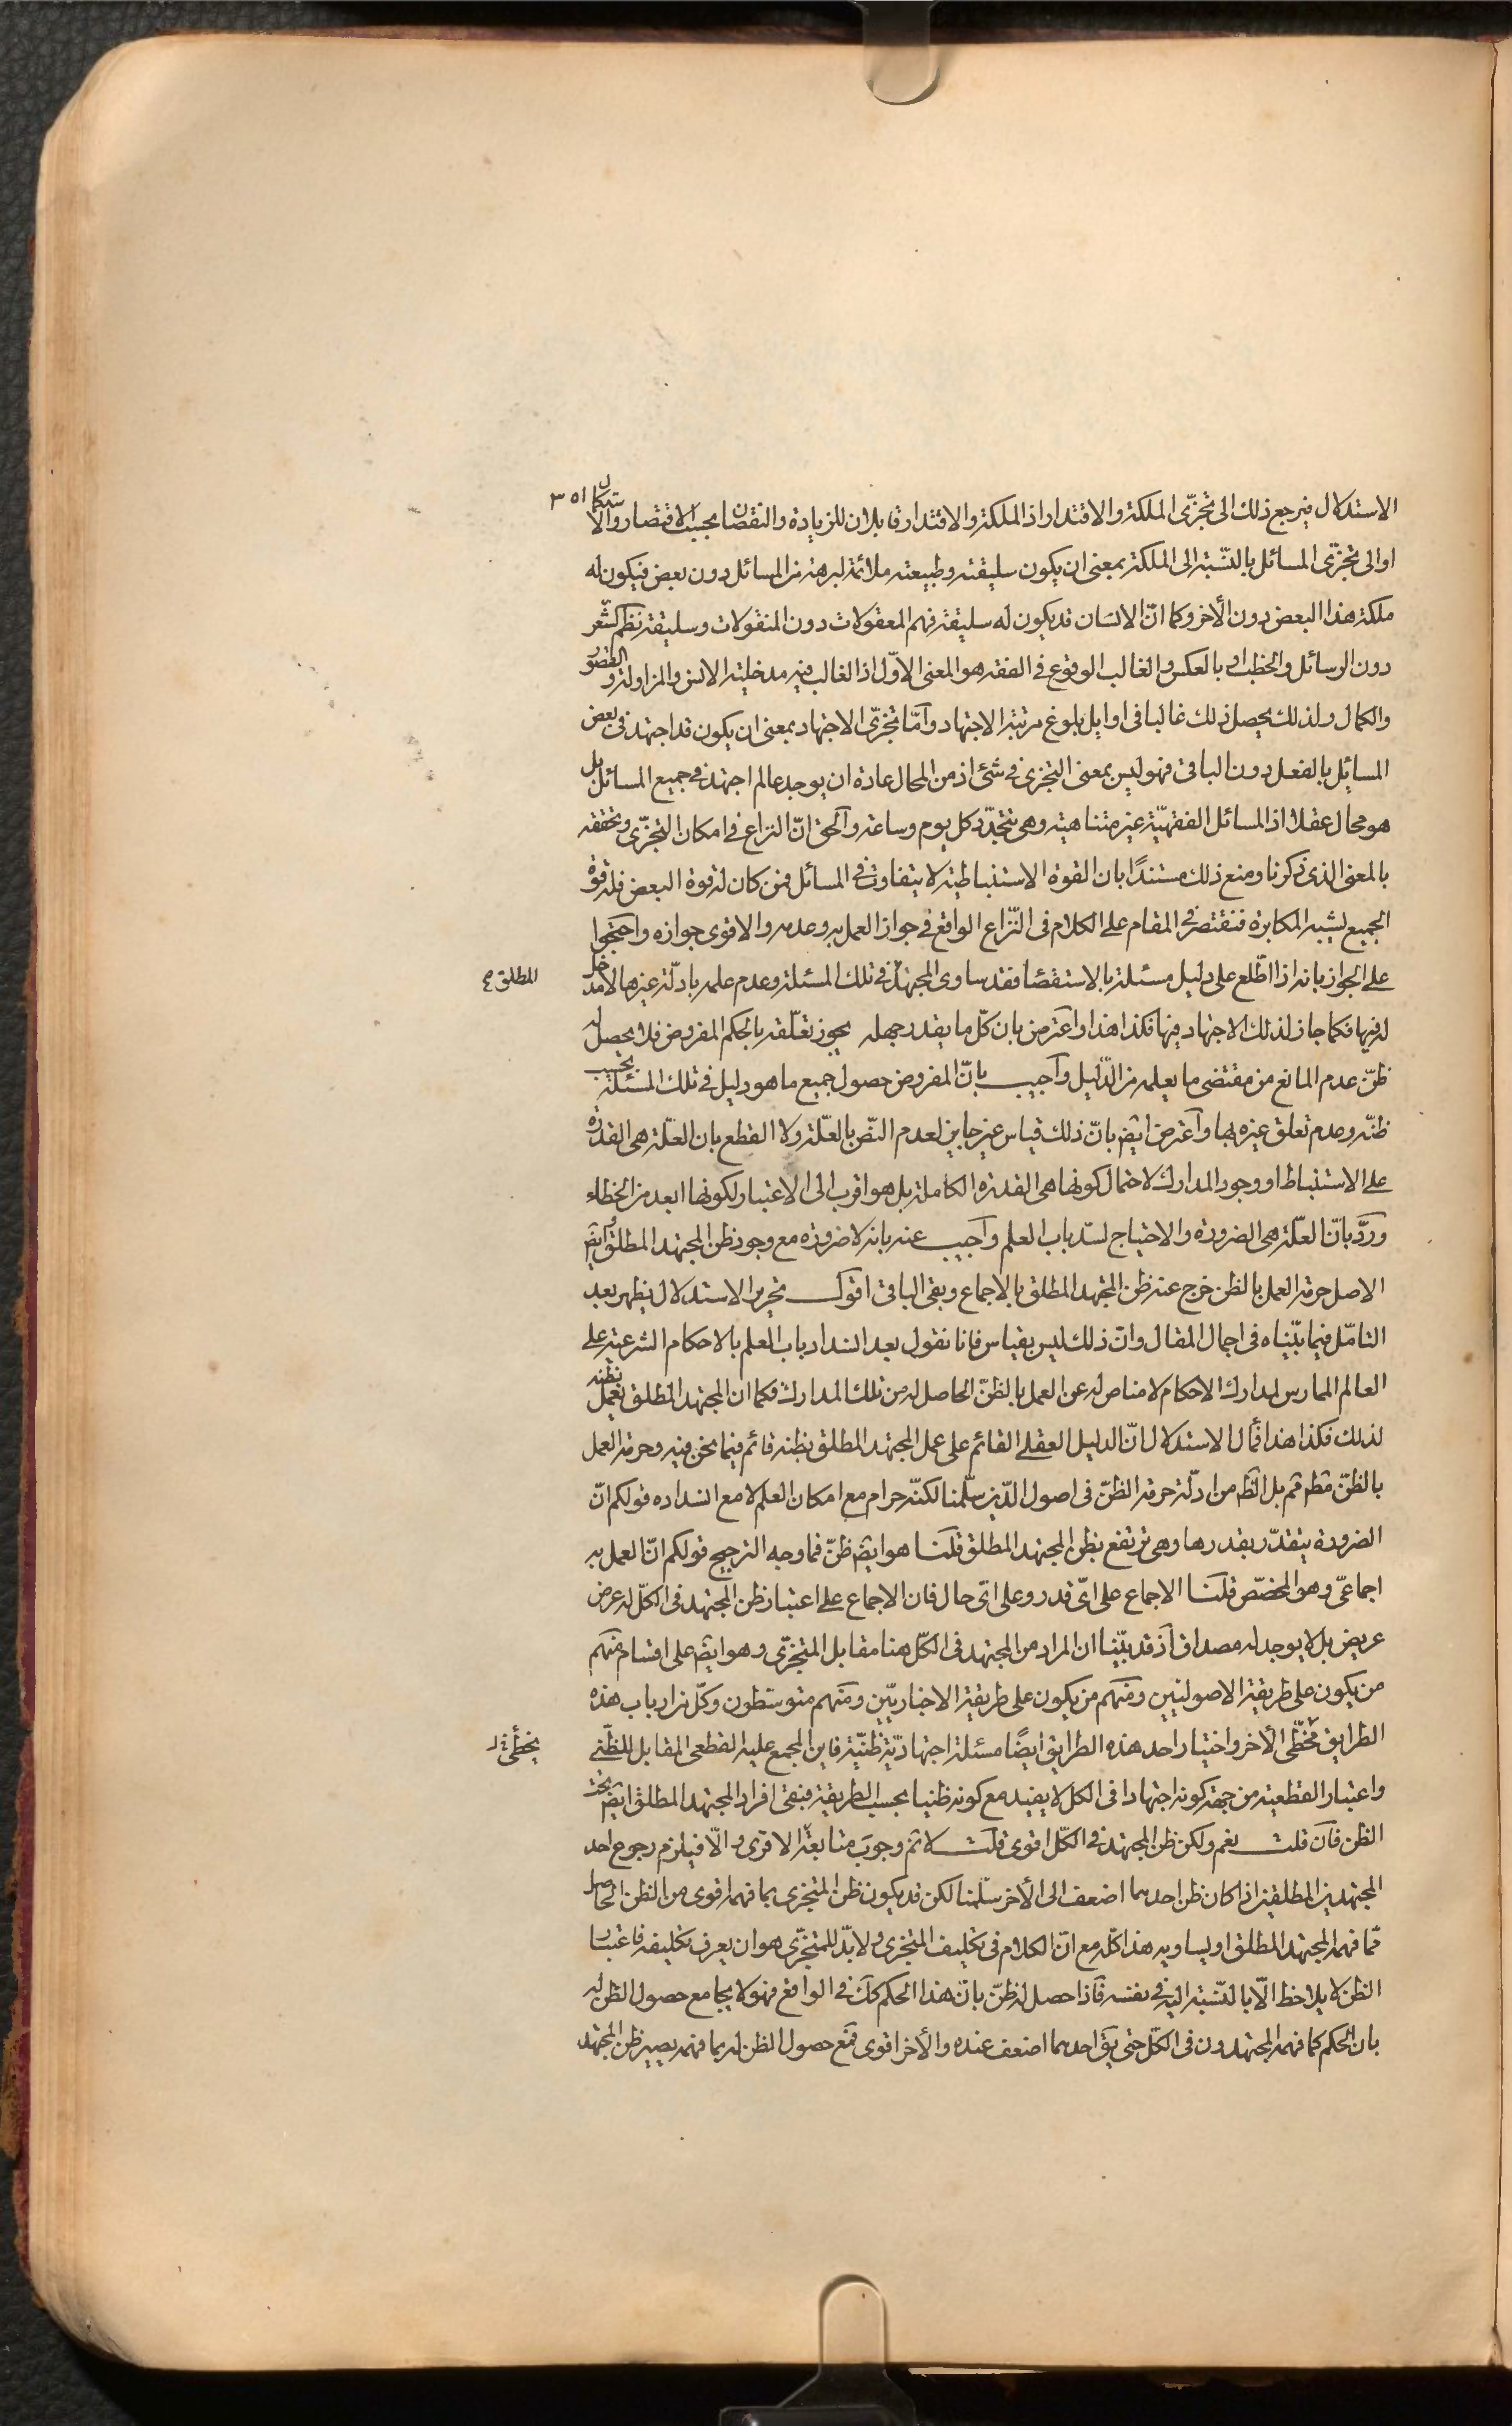 ٣٥١
الاستدلال فيرجع ذلك الى تجزّى الملكة والاقتدار اذ الملكة والاقتدار قابلان للزيادة والنقصان بحسب الاقتصار والاستكمال
او الى تجزّى المسائل بالنّسبة الى الملكة بمعنى ان يكون سليقته وطبيعته ملائمة لبرهة من المسائل دون بعض فيكون له
ملكة هذا البعض دون الأخر وكما انّ الانسان قد يكون له سليقة فهم المعقولات دون المنقولات وسليقة نظم الشّعر
دون الرسائل والخطب او بالعكس والغالب الوقوع فى الفقه هو المعنى الاوّل اذ الغالب فيه مدخلية الانس والمزاولة والقصور
والكمال ولذلك يحصل ذلك غالبا فى اوايل بلوغ مرتبة الاجتهاد وامّا تجزّى الاجتهاد بمعنى ان يكون قد اجتهد فى بعض
المسائل بالفعل دون الباقى فهو ليس بمعنى التجزى فى شئ اذ من المحال عادة ان يوجد عالم اجتهد فى جميع المسائل بل
هو محال عقلا اذ المسائل الفقهيّة غير متناهية وهى تتجدّد كل يوم وساعة والحق انّ النزاع فى امكان التجزّى وتحققه
بالمعنى الذى ذكرنا ومنع ذلك مستندًا بان القوة الاستنباطية لا يتفاوت فى المسائل فمن كان له قوة البعض فله قوّة
الجميع يشبه المكابرة فنقتصر فى المقام على الكلام فى النّزاع الواقع فى جواز العمل به وعدمه والاقوى جوازه واحتجّوا
على الجواز بانه اذا اطّلع على دليل مسئلة بالاستقصا فقد ساوى المجتهد فى تلك المسئلة وعدم علمه بادلّة غيرها لا مدخل
المطلق
له فيها فكما جاز لذلك الاجتهاد فيها فكذا هذا واعترض بان كلّ ما يقدر جهله يجوز تعلّقه بالحكم المفروض فلا يحصل له
ظنّ عدم المانع من مقتضى ما يعلمه من الدّليل واجيب بانّ المفروض حصول جميع ما هو دليل فى تلك المسئلة بحسب
ظنّه وعدم تعلق غيره بها واعترض ايضا بانّ ذلك قياس غير جايز لعدم النّص بالعلّة ولا القطع بان العلّة هى القدرة
على الاستنباط او وجود المدارك لاحتمال كونها هى القدرة الكاملة بل هو اقرب الى الاعتبار لكونها ابعد من الخطاء
وردّ بانّ العلّة هى الضرورة والاحتياج لسدّ باب العلم واجيب عنه بانه لا ضرورة مع وجود ظن المجتهد المطلق وايضا
الاصل حرمة العمل بالظن خرج عنه ظن المجتهد المطلق بالاجماع وبقى الباقى اقول تحرير الاستدلال يظهر بعد
التامّل فيما بيّناه فى اجمال المقال وانّ ذلك ليس بقياس فانا نقول بعد انسداد باب العلم بالاحكام الشرعية على
العالم الممارس لمدارك الاحكام لا مناص له عن العمل بالظنّ الحاصل له من تلك المدارك فكما ان المجتهد المطلق يعمل بظنه
لذلك فكذا هذا فمآل الاستدلال انّ الدليل العقلى القائم على عمل المجتهد المطلق بظنه قائم فيما نحن فيه وحرمة العمل
بالظنّ مطم ثم بل الظم من ادلّة حرمة الظنّ فى اصول الدّين سلّمنا لكنّه حرام مع امكان العلم لا مع انسداده قولكم انّ
الضرورة يتقدّر بقدرها وهى ترتفع بظن المجتهد المطلق قلنا هو ايضا ظنّ فما وجه الترجيح قولكم انّ العمل به
اجماعىّ وهو المخصّص قلنا الاجماع على اىّ قدر وعلى اىّ حال فان الاجماع على اعتبار ظن المجتهد فى الكلّ له عرض
عريض بل لا يوجد له مصداق اذ قد بيّنا ان المراد من المجتهد فى الكلّ هنا مقابل المتجزّى وهو ايضا على اقسام منهم
من يكون على طريقة الاصوليين ومنهم من يكون على طريقة الاخباريّين ومنهم متوسّطون وكلّ من ارباب هذه
الطرايق مخطّى الأخر واختيار احد هذه الطرايق ايضًا مسئلة اجتهاديّة ظنّيّة فاين المجمع عليه القطعى المقابل للظّنى
يخطّئ
واعتبار القطعية من جهة كونه اجتهادا فى الكل لا يفيد مع كونه ظنيا بحسب الطريقة فبقى افراد المجتهد المطلق ايضا تحت
الظن فان قلت نعم ولكن ظن المجتهد فى الكلّ اقوى قلت لا ثم وجوب متابعة الاقوى والّا فيلزم رجوع احد
المجتهدين المطلقين اذا كان ظن احدهما اضعف الى الأخر سلّمنا لكن قد يكون ظن المتجزى بما فهمه اقوى من الظن الحاصل
ممّا فهمه المجتهد المطلق او يساويه هذا كلّه مع انّ الكلام فى تكليف المتجزى ولا بدّ للمتجزّى هو ان يعرف تكليفه فاعتبار
الظن لا يلاحظ الّا بالنّسبة اليه فى نفسه فاذا حصل له ظنّ بانّ هذا الحكم كك فى الواقع فهو لا يجامع حصول الظن له
بان الحكم كما فهمه المجتهدون فى الكلّ حتى يق احدهما اضعف عنده والأخر اقوى فمع حصول الظن له بما فهمه يصير ظن المجتهد